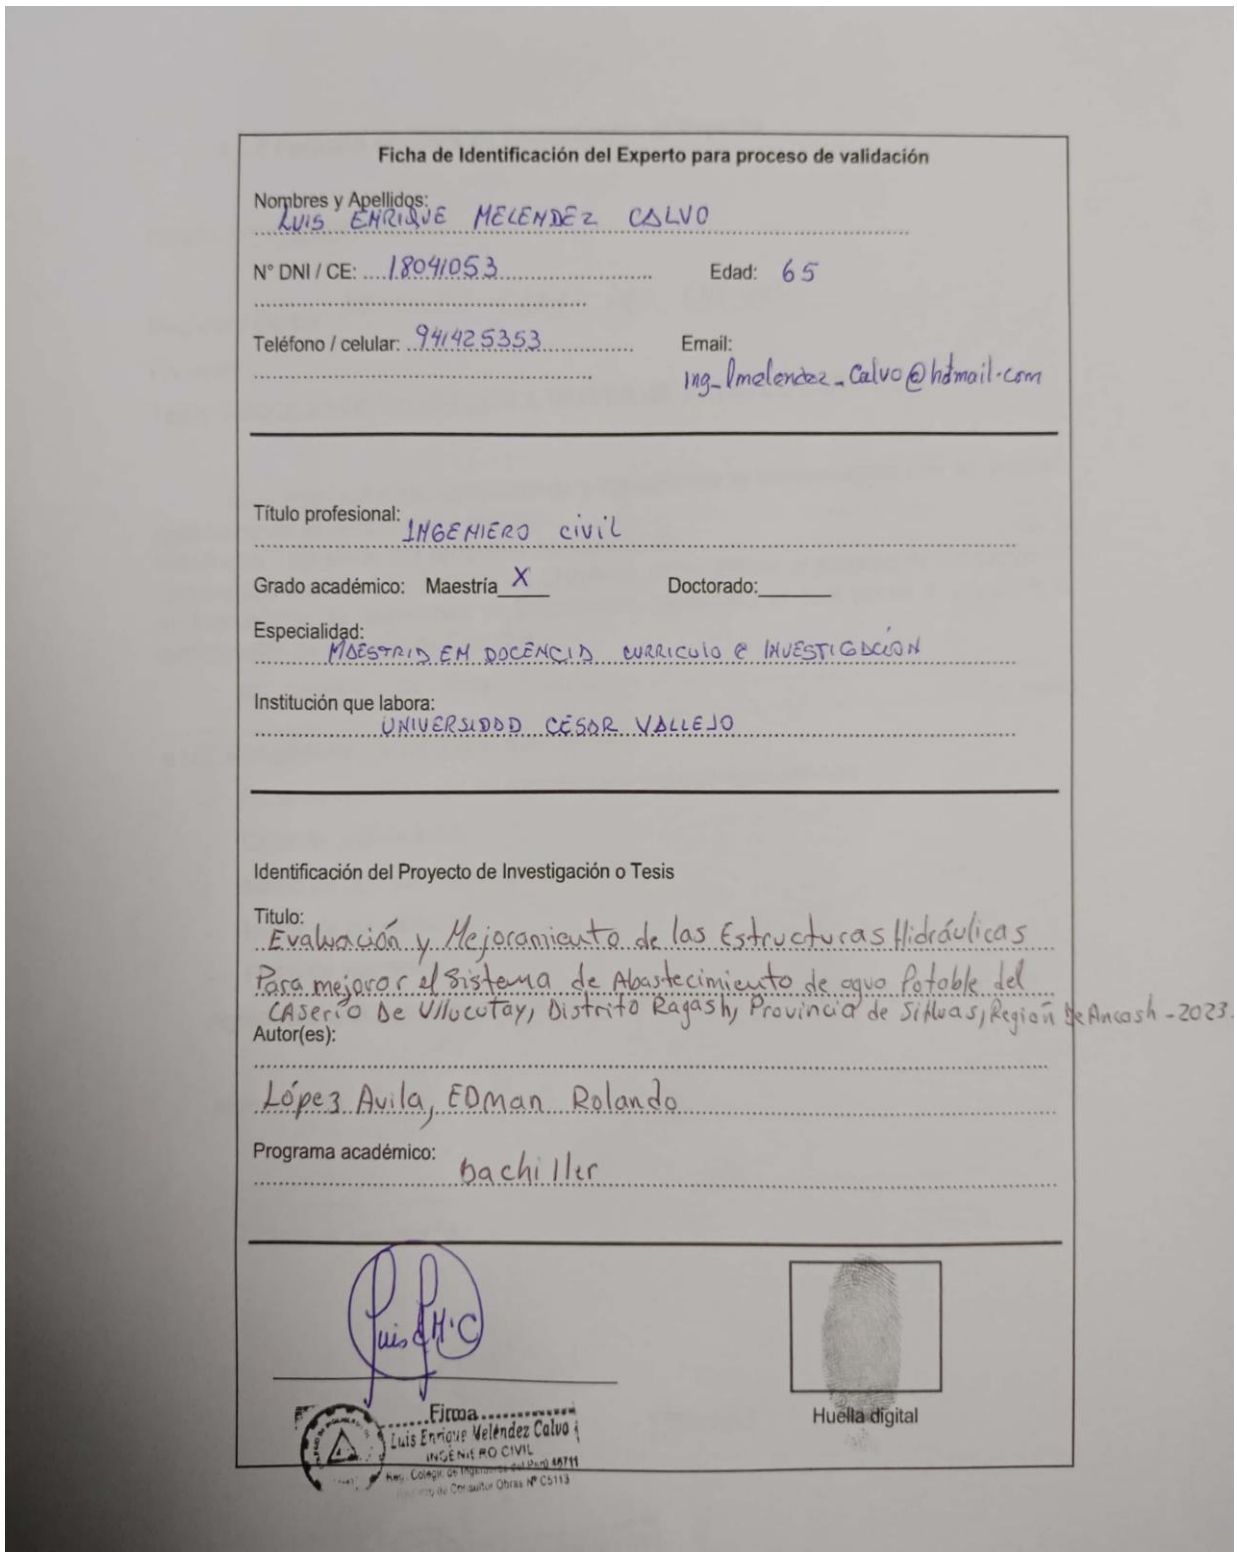 Ficha de Identificación del Experto para proceso de validación
Nombres y Apellidos:
LUIS ENRIQUE MELENDEZ CALVO
N° DNI / CE: 18041053 Edad: 65
Teléfono / celular: 941425353 Email:
Ing_lmelendez_Calvo@hotmail.com
Título profesional:
INGENIERO civil
Grado académico: Maestría X Doctorado:
Especialidad:
MAESTRIA EN DOCENCIA CURRICULO E INVESTIGACIÓN
Institución que labora:
UNIVERSIDAD CÉSAR VALLEJO
Identificación del Proyecto de Investigación o Tesis
Titulo:
Evaluación y Mejoramiento de las Estructuras Hidráulicas
Para mejorar el Sistema de Abastecimiento de agua Potable del
CASerío De Ullucutay, Distrito Ragash, Provincia de Sihuas, Región De Ancash - 2023.
Autor(es):
López Avila, EDman Rolando
Programa académico:
bachiller
Luis E M.C
Firma
Luis Enrique Meléndez Calvo
INGENIERO CIVIL
Reg. Colegio de Ingenieros del Perú 46711
Registro de Consultor Obras N° C5113
Huella digital